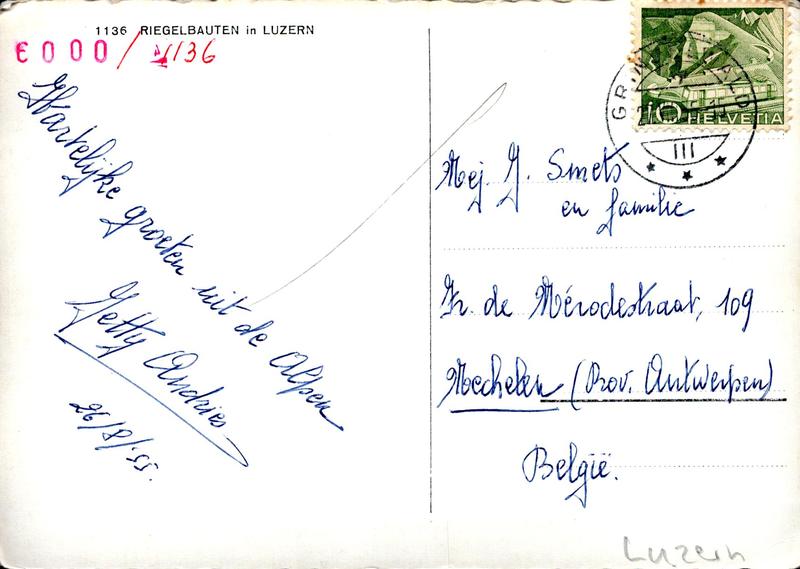 1136 RIEGELBAUTEN in LUZERN
E000/1136
Hartelijke groeten uit de Alpen
Jetty Andries
26/8/'55.
10 HELVETIA
III
Mej. J. Smets
en familie
Fr. de Mérodestraat, 109
Mechelen (Prov. Antwerpen)
België.
Luzern